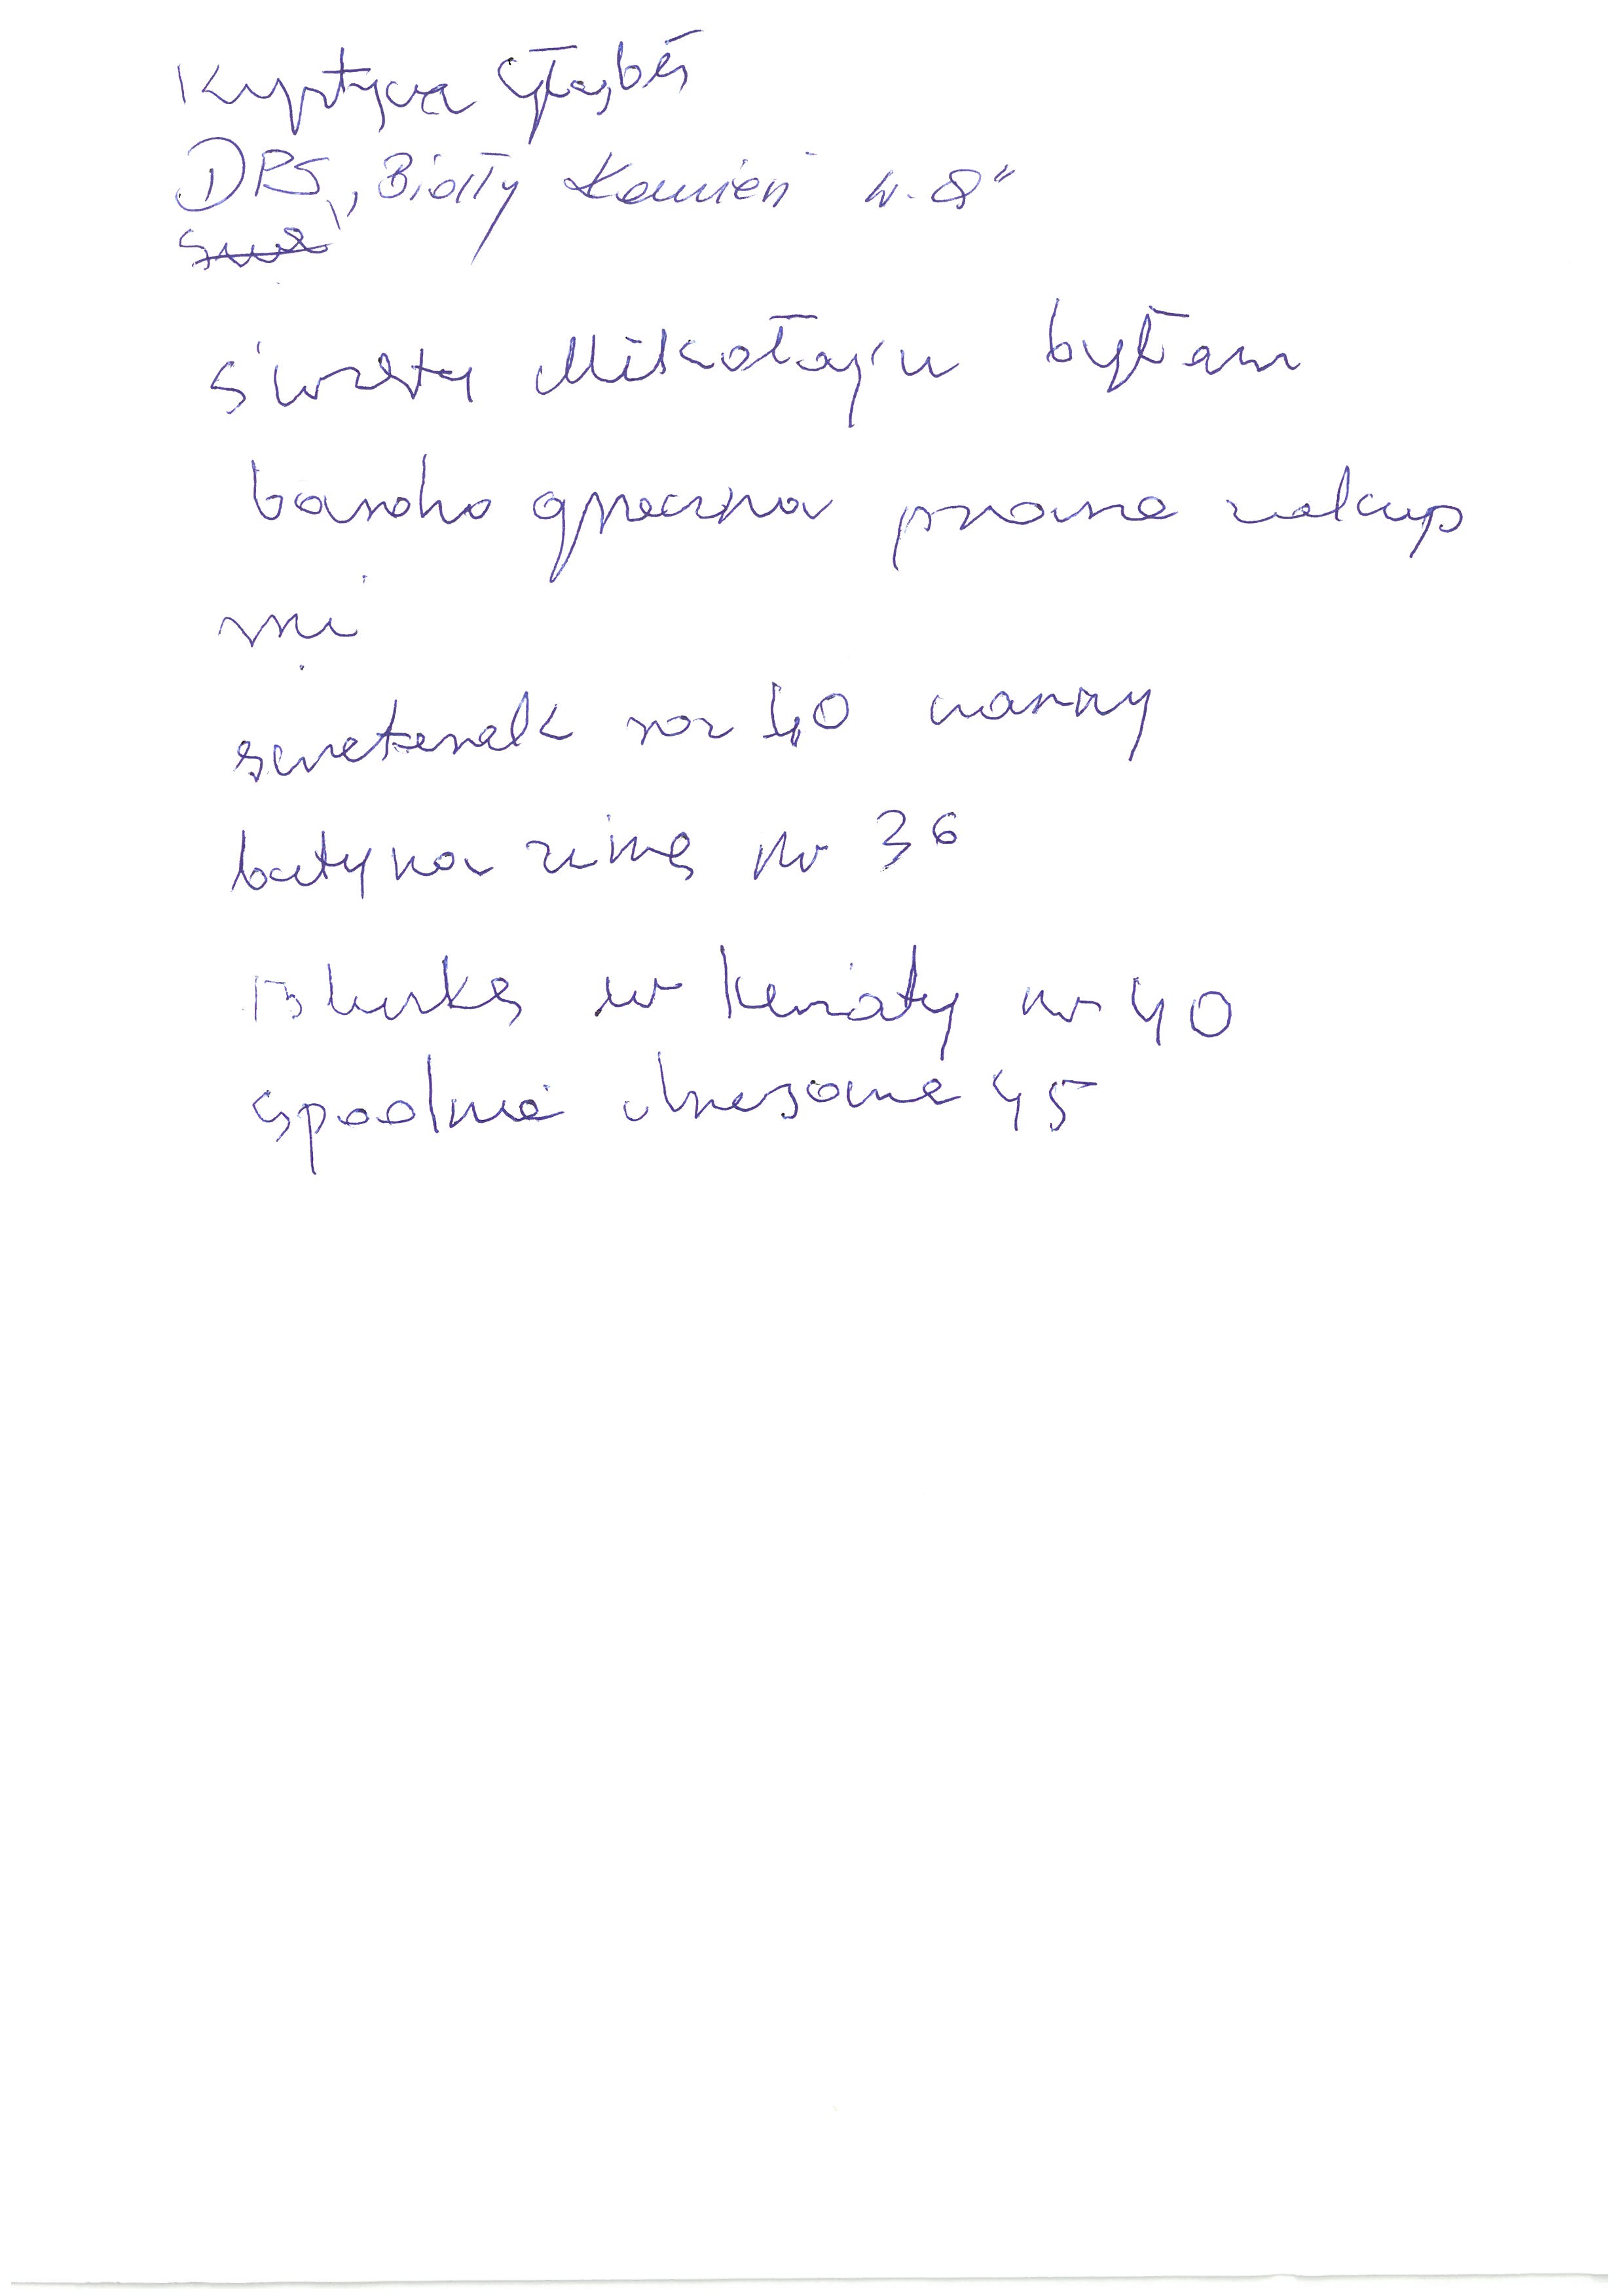 Krystyna
DPS „Biały Kamień w. 8"
święty Mikołaju byłam
bardzo grzeczna proszę zakup
mi
sweterek roz 40 czarny
buty na zimę nr 36
Bluzkę w kwiaty nr 40
spodnie dresowe 45